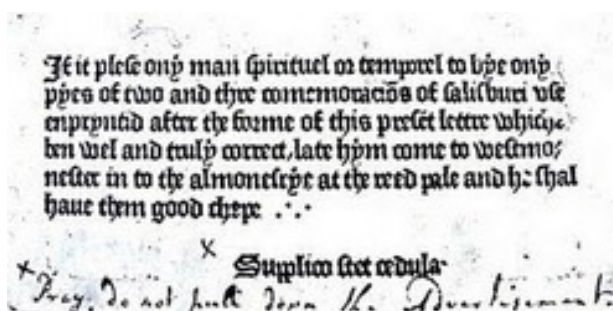 If it plese ony man spirituel or temporel to bye ony
pyes of two and thre comemoracios of salisburi vse
enpryntid after the forme of this preset lettre whiche
ben wel and truly correct, late hym come to westmo⸗
nester in to the almonesrye at the reed pale and he shal
haue them good chepe .·.·
Supplico stet cedula
Pray, do not pull down the Advertisement